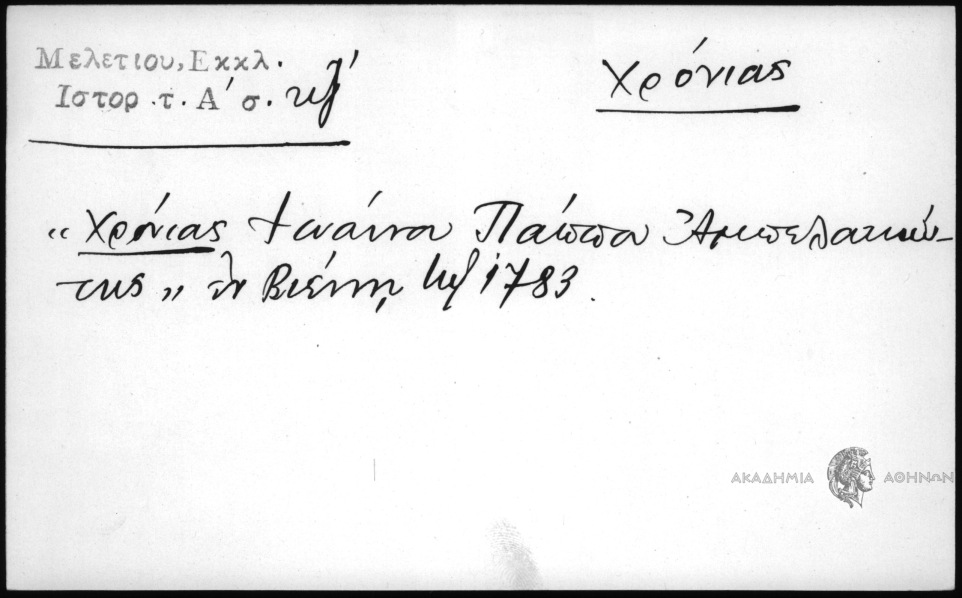 Μελετιου, Εκκλ.
Ιστορ. τ. Α' σ. κζ'
Χρόνιας
“Χρόνιας Ἰωάννου Πάππα Ἀμπελακιώ-
της„ ἐν Βιέννῃ
1783.
ΑΚΑΔΗΜΙΑ ΑΘΗΝΩΝ